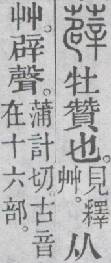 薜牡贊也。見釋艸。从
艸。辟聲。蒲計切。古音在十六部。